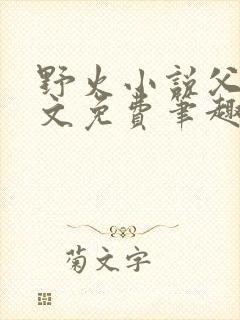 野火小说父
文免费笔趣
菊文字